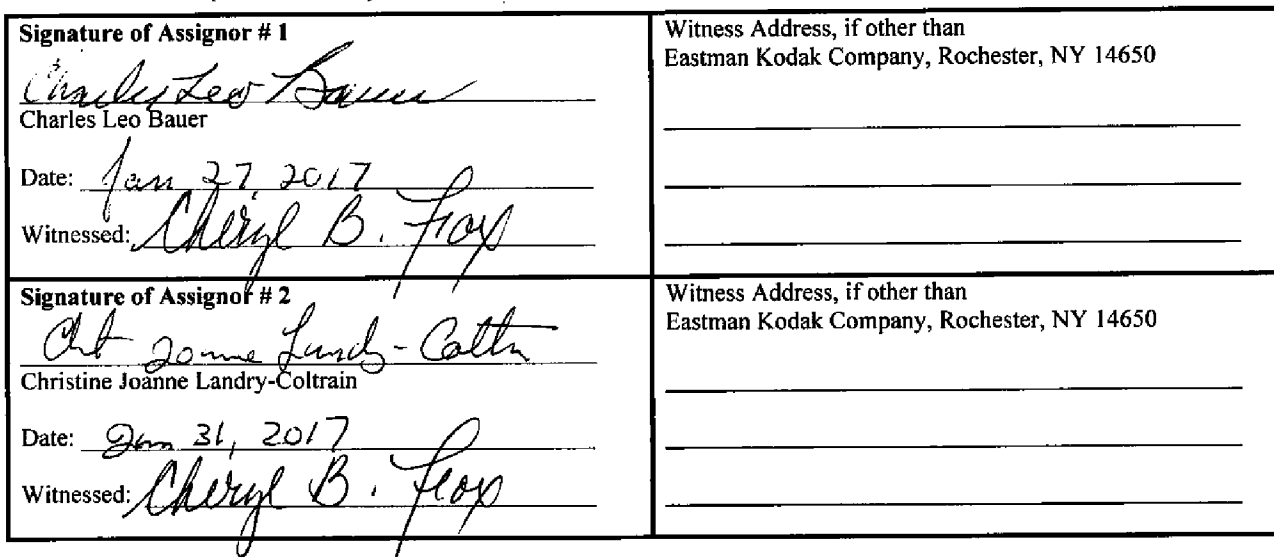 Signature of Assignor # 1
Charles Leo Bauer
Charles Leo Bauer
Date: Jan 27, 2017
Witnessed: Cheryl B. Fox
Witness Address, if other than
Eastman Kodak Company, Rochester, NY 14650
Signature of Assignor # 2
Christine Joanne Landry-Coltrain
Date: Jan 31, 2017
Witnessed: Cheryl B. Fox
Witness Address, if other than
Eastman Kodak Company, Rochester, NY 14650